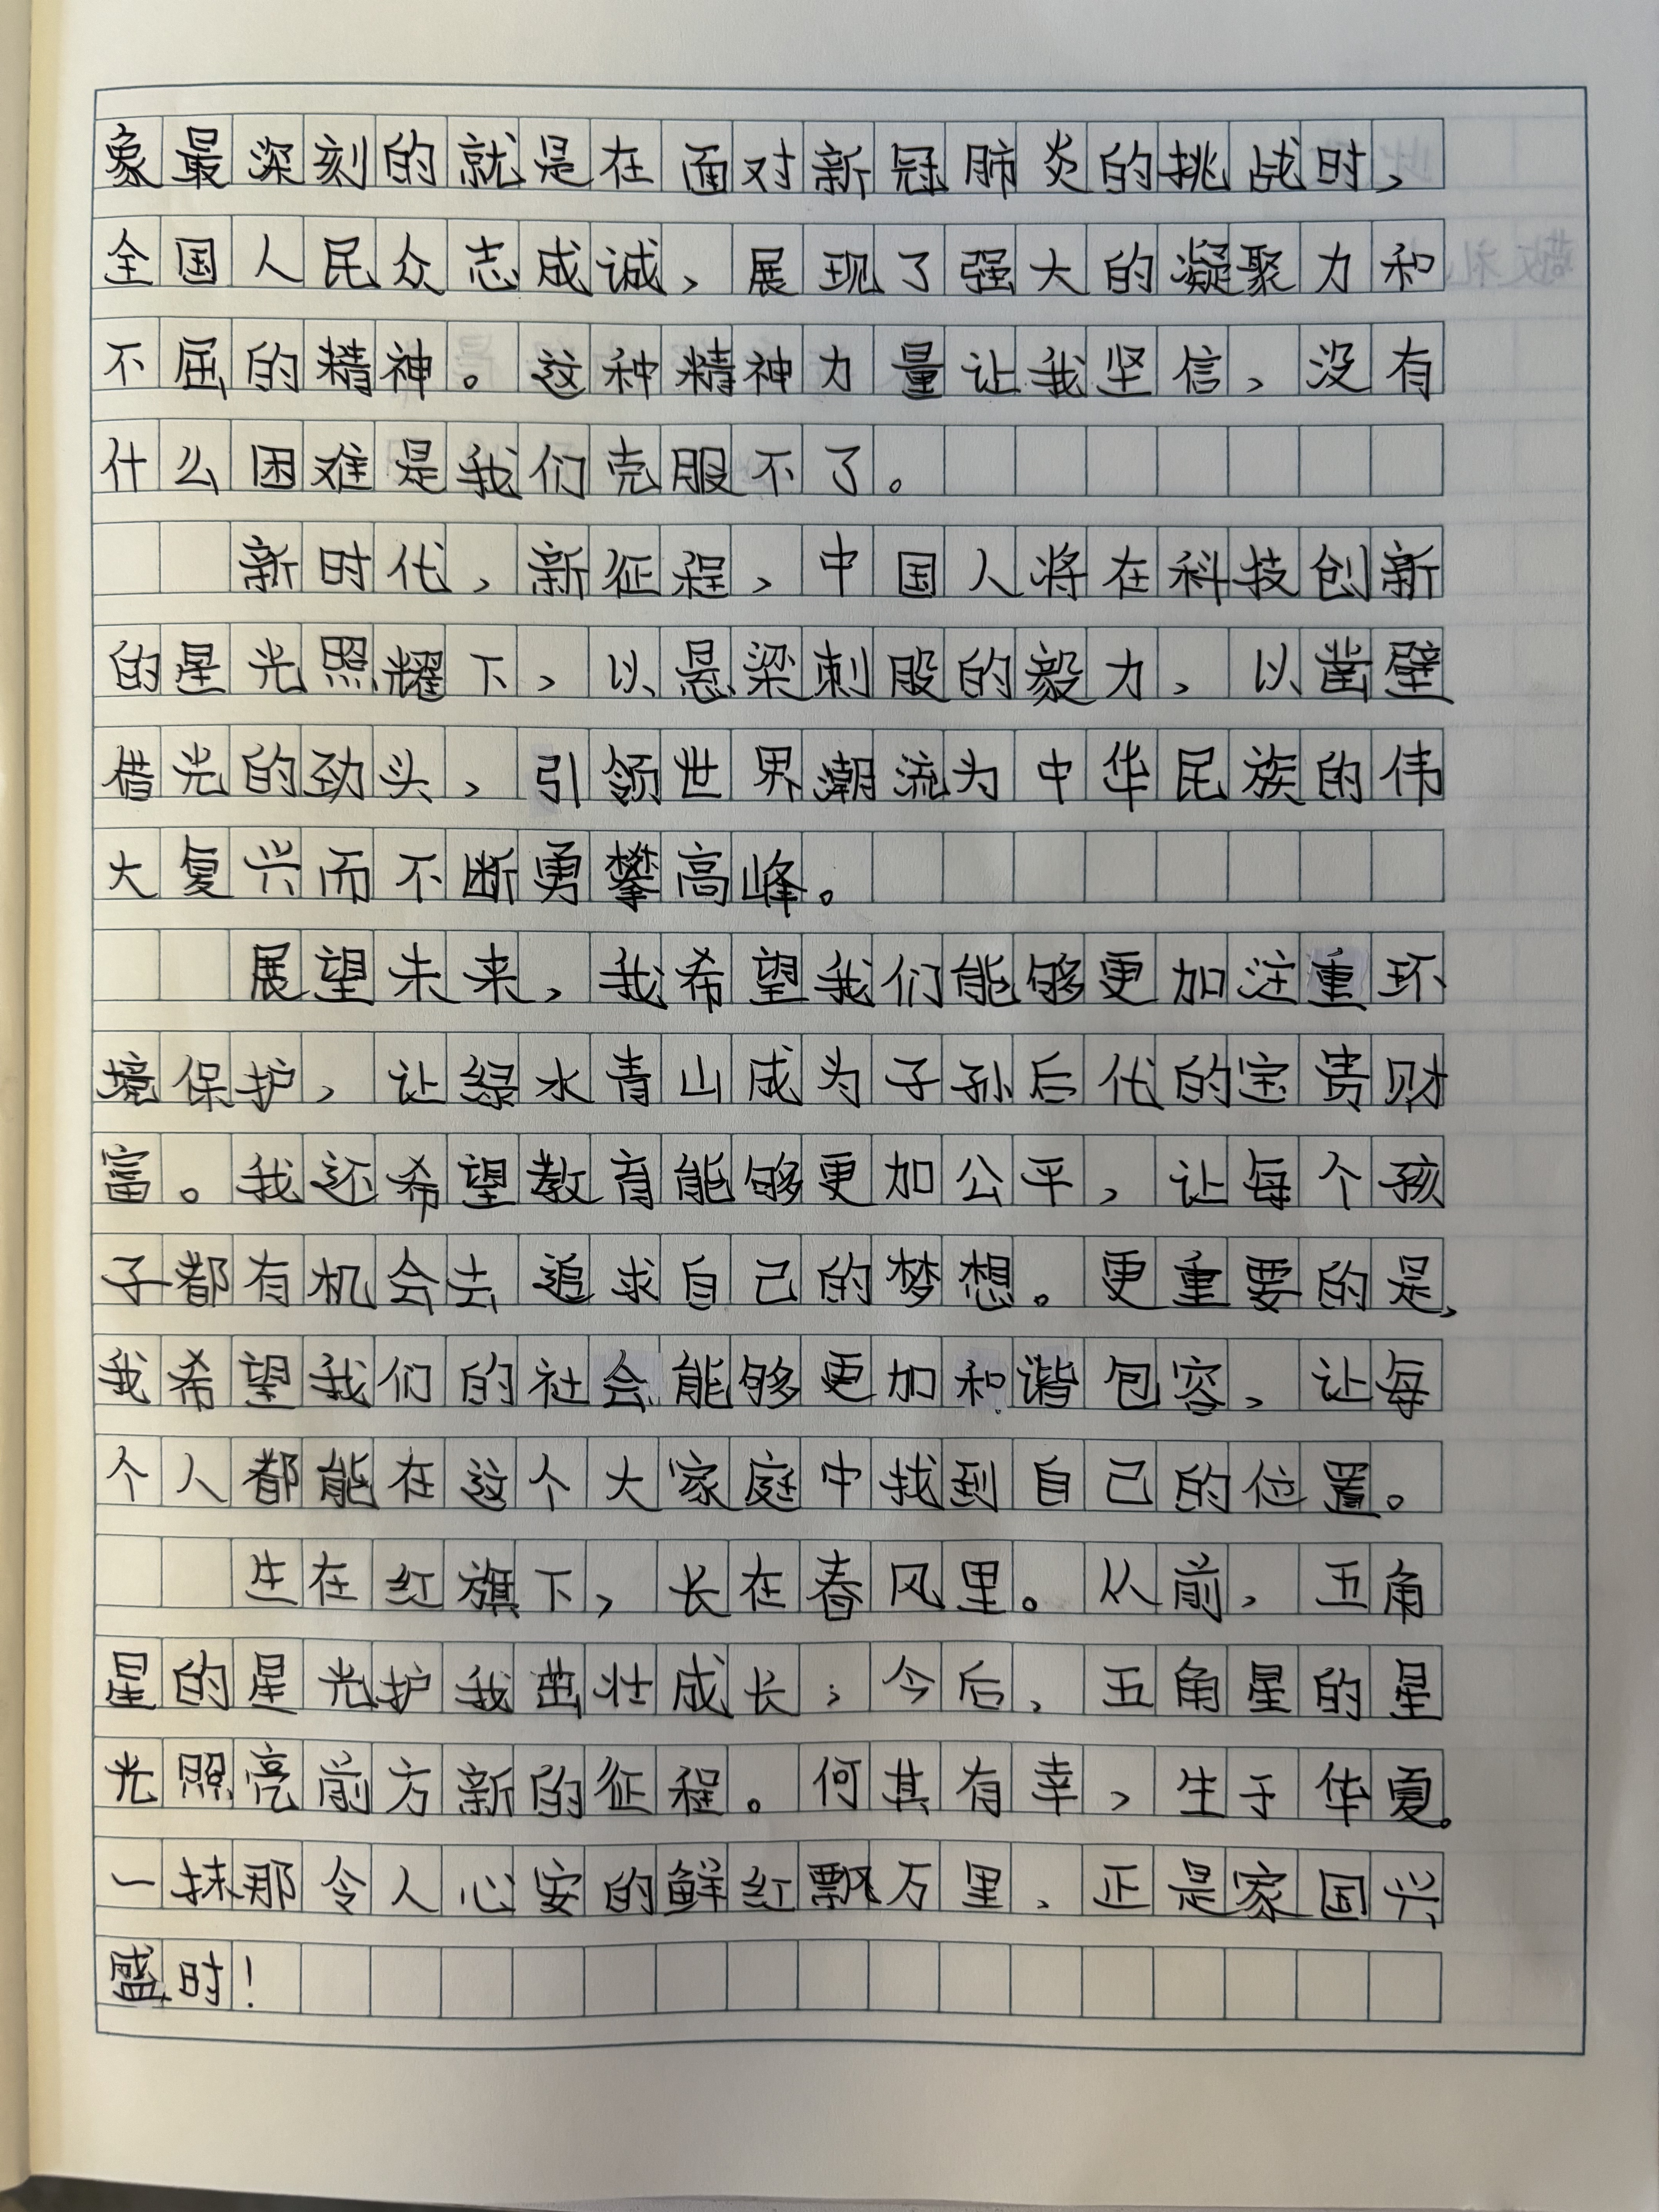 象最深刻的就是在面对新冠肺炎的挑战时，
全国人民众志成诚，展现了强大的凝聚力和
不屈的精神。这种精神力量让我坚信，没有
什么困难是我们克服不了。
新时代，新征程，中国人将在科技创新
的星光照耀下，以悬梁刺股的毅力，以凿壁
借光的劲头，引领世界潮流为中华民族的伟
大复兴而不断勇攀高峰。
展望未来，我希望我们能够更加注重环
境保护，让绿水青山成为子孙后代的宝贵财
富。我还希望教育能够更加公平，让每个孩
子都有机会去追求自己的梦想。更重要的是，
我希望我们的社会能够更加和谐包容，让每
个人都能在这个大家庭中找到自己的位置。
生在红旗下，长在春风里。从前，五角
星的星光护我茁壮成长；今后，五角星的星
光照亮前方新的征程。何其有幸，生于华夏。
一抹那令人心安的鲜红飘万里，正是家国兴
盛时！